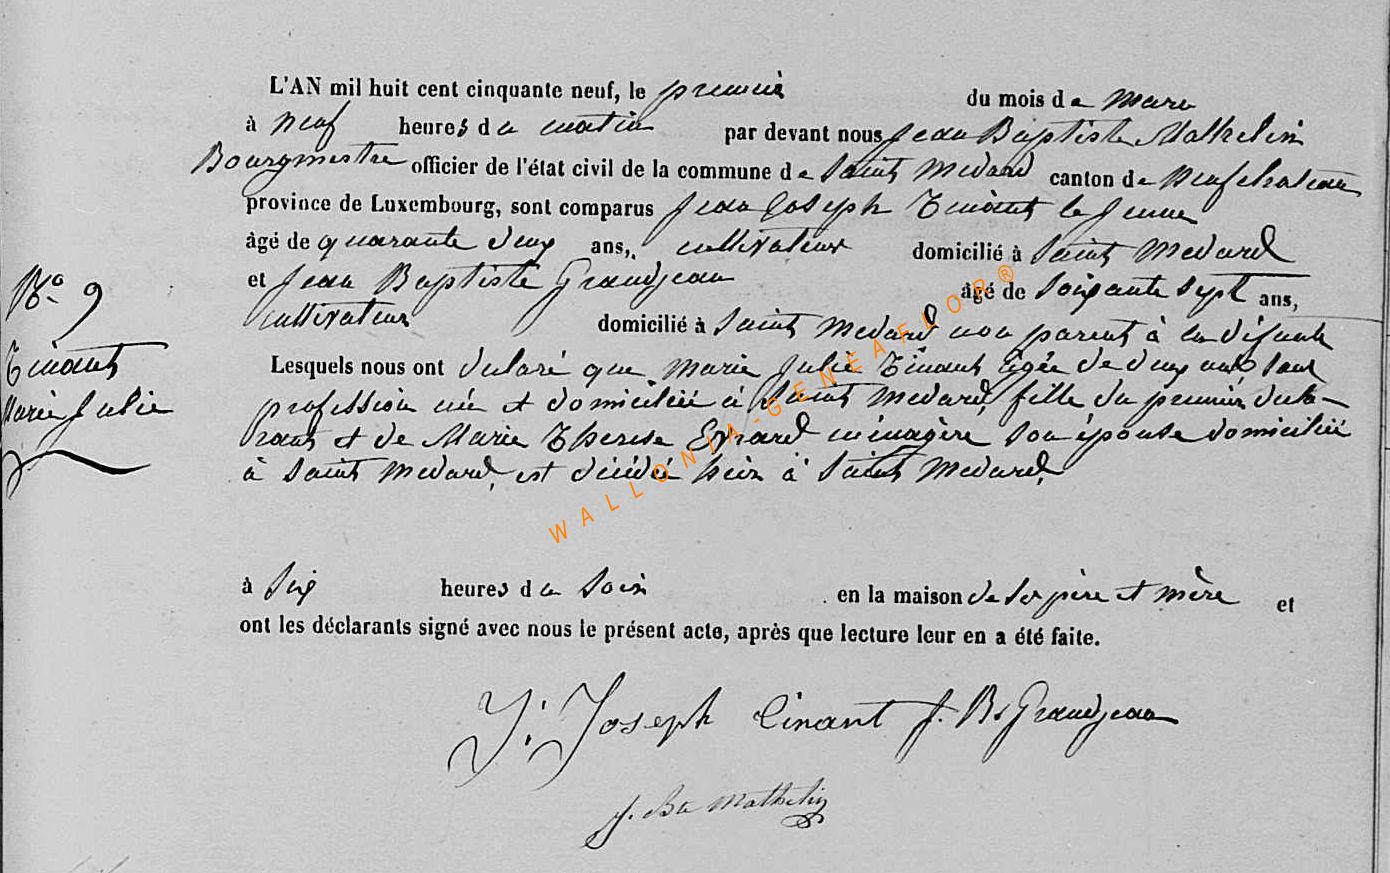 L'AN mil huit cent cinquante neuf, le premier du mois de mars
à neuf heures du matin par devant nous Jean Baptiste Mathelin
Bourgmestre officier de l'état civil de la commune de Saint Medard canton de Neufchateau
province de Luxembourg, sont comparus Jean Joseph Tinant le jeune
âgé de quarante deux ans, cultivateur domicilié à Saint Medard
et Jean Baptiste Grandjean âgé de soixante sept ans,
cultivateur domicilié à Saint Medard non parent à la défunte
Lesquels nous ont declaré que Marie Julie Tinant agée de deux ans sans
profession née et domiciliée à Saint Medard, fille du premier décla-
rant et de Marie Therese Evrard ménagère son épouse domiciliée
à Saint Medard, est décédée hier à Saint Medard,
à six heures du soir en la maison de ses père et mère et
ont les déclarants signé avec nous le présent acte, après que lecture leur en a été faite.
No 9
Tinant
Marie Julie
J. Joseph Tinant J. Bte Grandjean
J. Bte Mathelin
WALLONIA-GENEAFLOR®